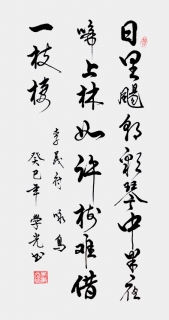 日里飏朝彩琴中半夜
啼上林如许树难借
一枝栖
李义府 咏乌
癸巳年 学光书